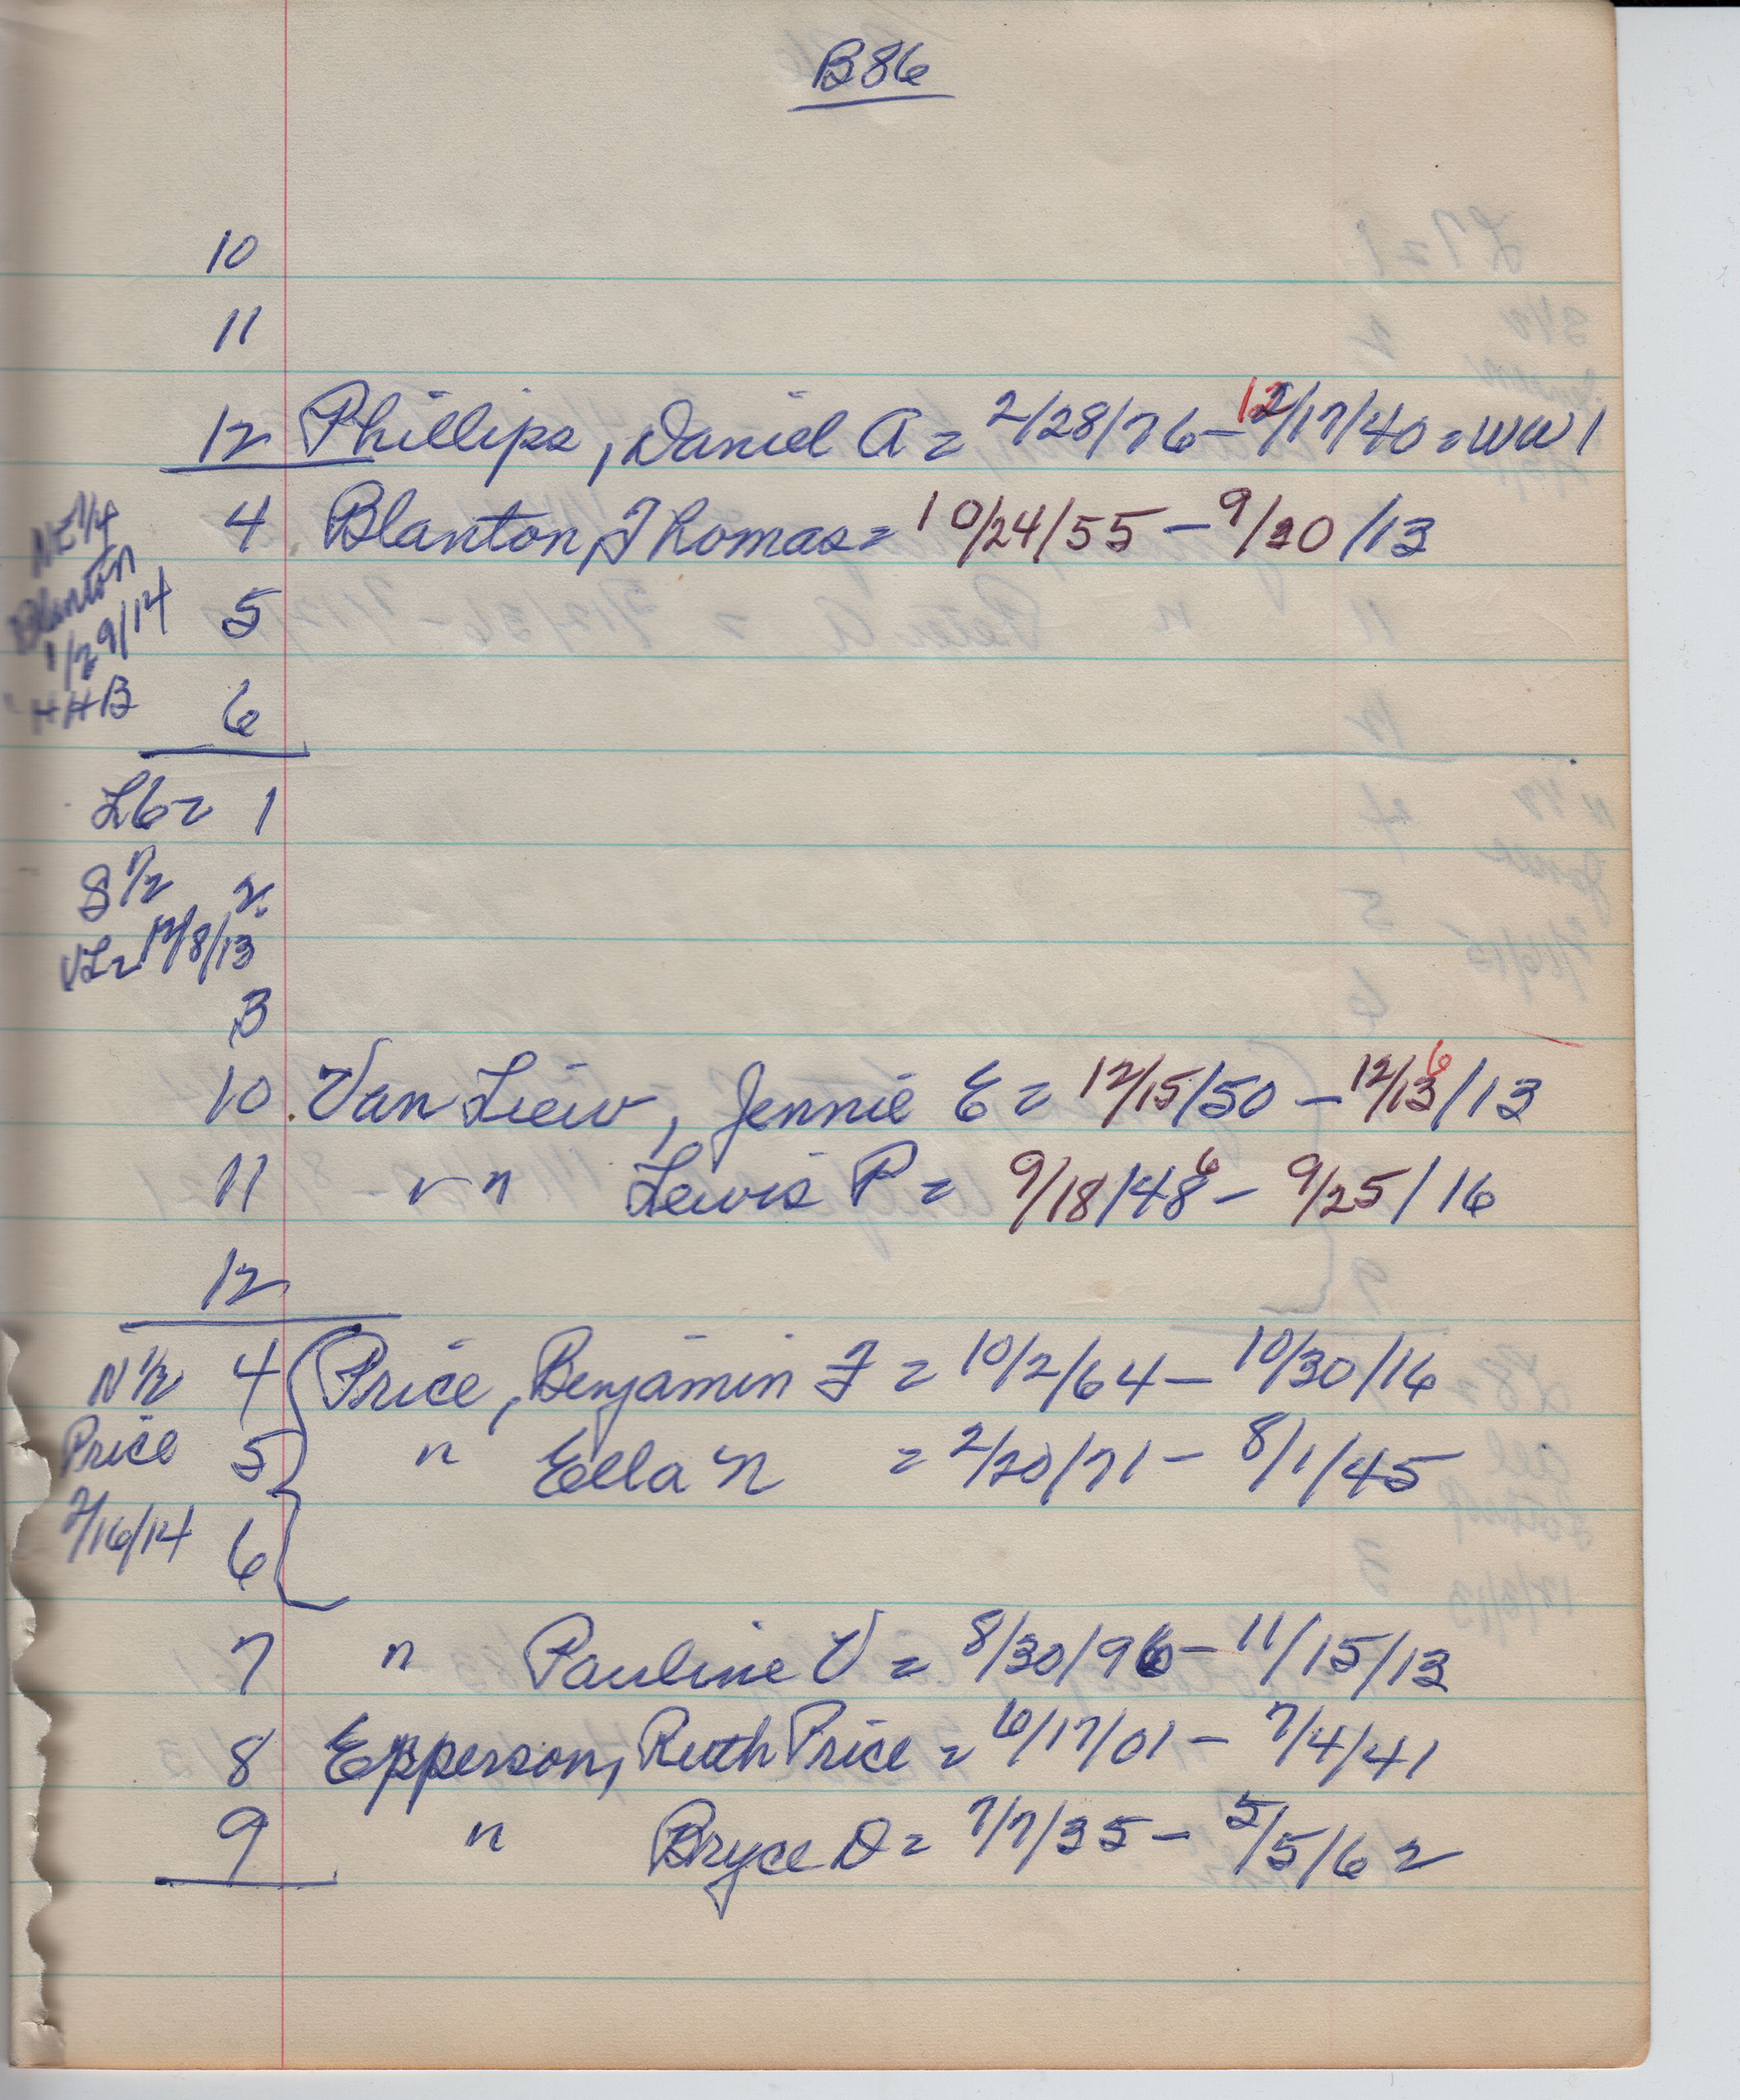 B86
10
11
12 Phillips, Daniel A = 2/28/76 - 12/17/40 = WW1
NE 1/4 4 Blanton, Thomas = 10/24/55 - 9/20/13
Blanton 5
1/29/14
HHB 6
L6 = 1
S 1/2 2
VL = 12/8/13
3
10 Van Liew, Jennie E = 12/15/50 - 12/13/13 6
11 " " Lewis P = 9/18/48 6 - 9/25/16
12
N 1/2 4 Price, Benjamin F = 10/2/64 - 10/30/16
Price 5 " Ella N = 2/20/71 - 8/1/45
2/16/14 6
7 " Pauline V = 8/30/96 - 11/15/13
8 Epperson, Ruth Price = 6/17/01 - 7/4/41
9 " Bryce D = 7/7/35 - 5/5/62